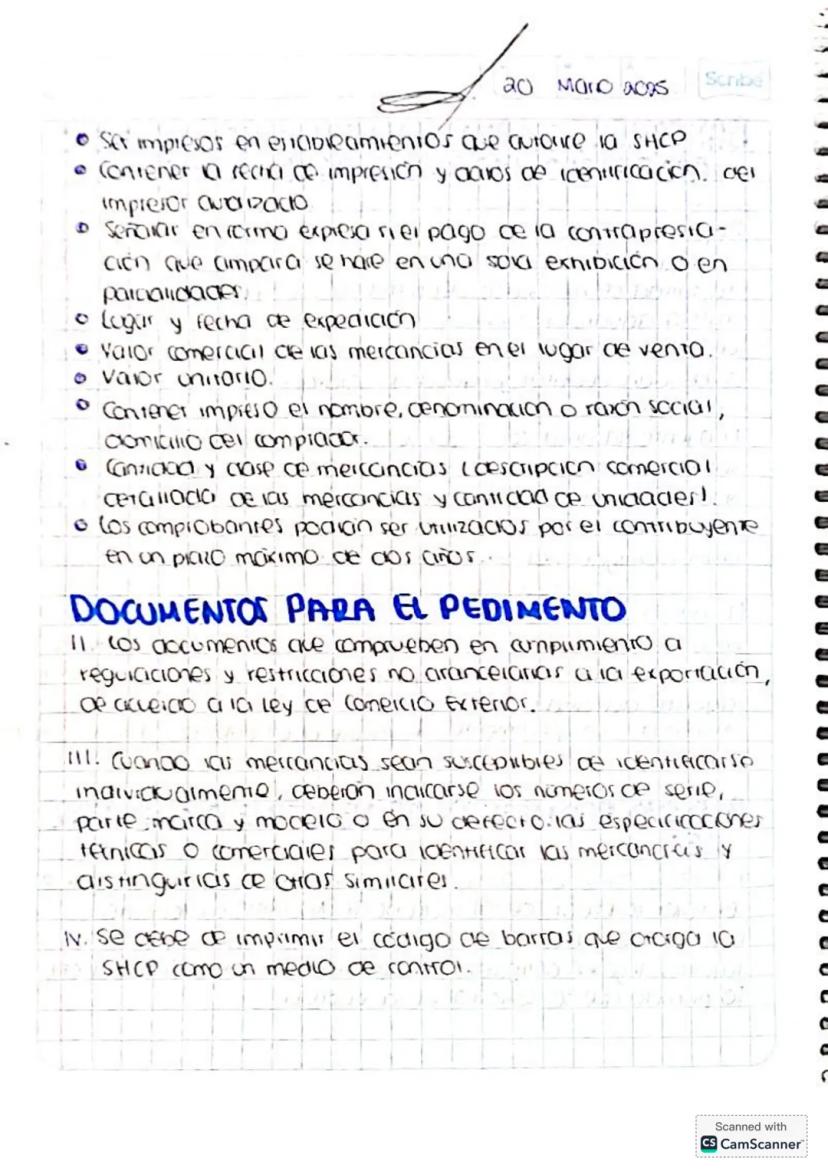 20 Mayo 2025
Scribe
• Ser impresos en establecimientos que autorice la SHCP
• Contener la fecha de impresión y datos de identificación. del
impresor autorizado
• Señalar en forma expresa si el pago de la contrapresta-
ción que ampara se hace en una sola exhibición o en
parcialidades.
• Lugar y fecha de expedición
• Valor comercial de las mercancias en el lugar de venta.
• Valor unitario.
• Contener impreso el nombre, denominación o razón social,
domicilio del comprador.
• Cantidad y clase de mercancias (descripción comercial
detallada de las mercancias y cantidad de unidades).
• Los comprobantes podrán ser utilizados por el contribuyente
en un plazo máximo de dos años.
DOCUMENTOS PARA EL PEDIMENTO
II. Los documentos que comprueben en cumplimiento a
regulaciones y restricciones no arancelarias a la exportación,
de acuerdo a la Ley de Comercio Exterior.
III. Cuando las mercancias sean susceptibles de identificarse
individualmente, deberán indicarse los números de serie,
parte, marca y modelo o en su defecto las especificaciones
técnicas o comerciales para identificar las mercancias y
distinguirlas de otras similares.
IV. Se debe de imprimir el código de barras que otorga la
SHCP como un medio de control.
Scanned with
CS CamScanner